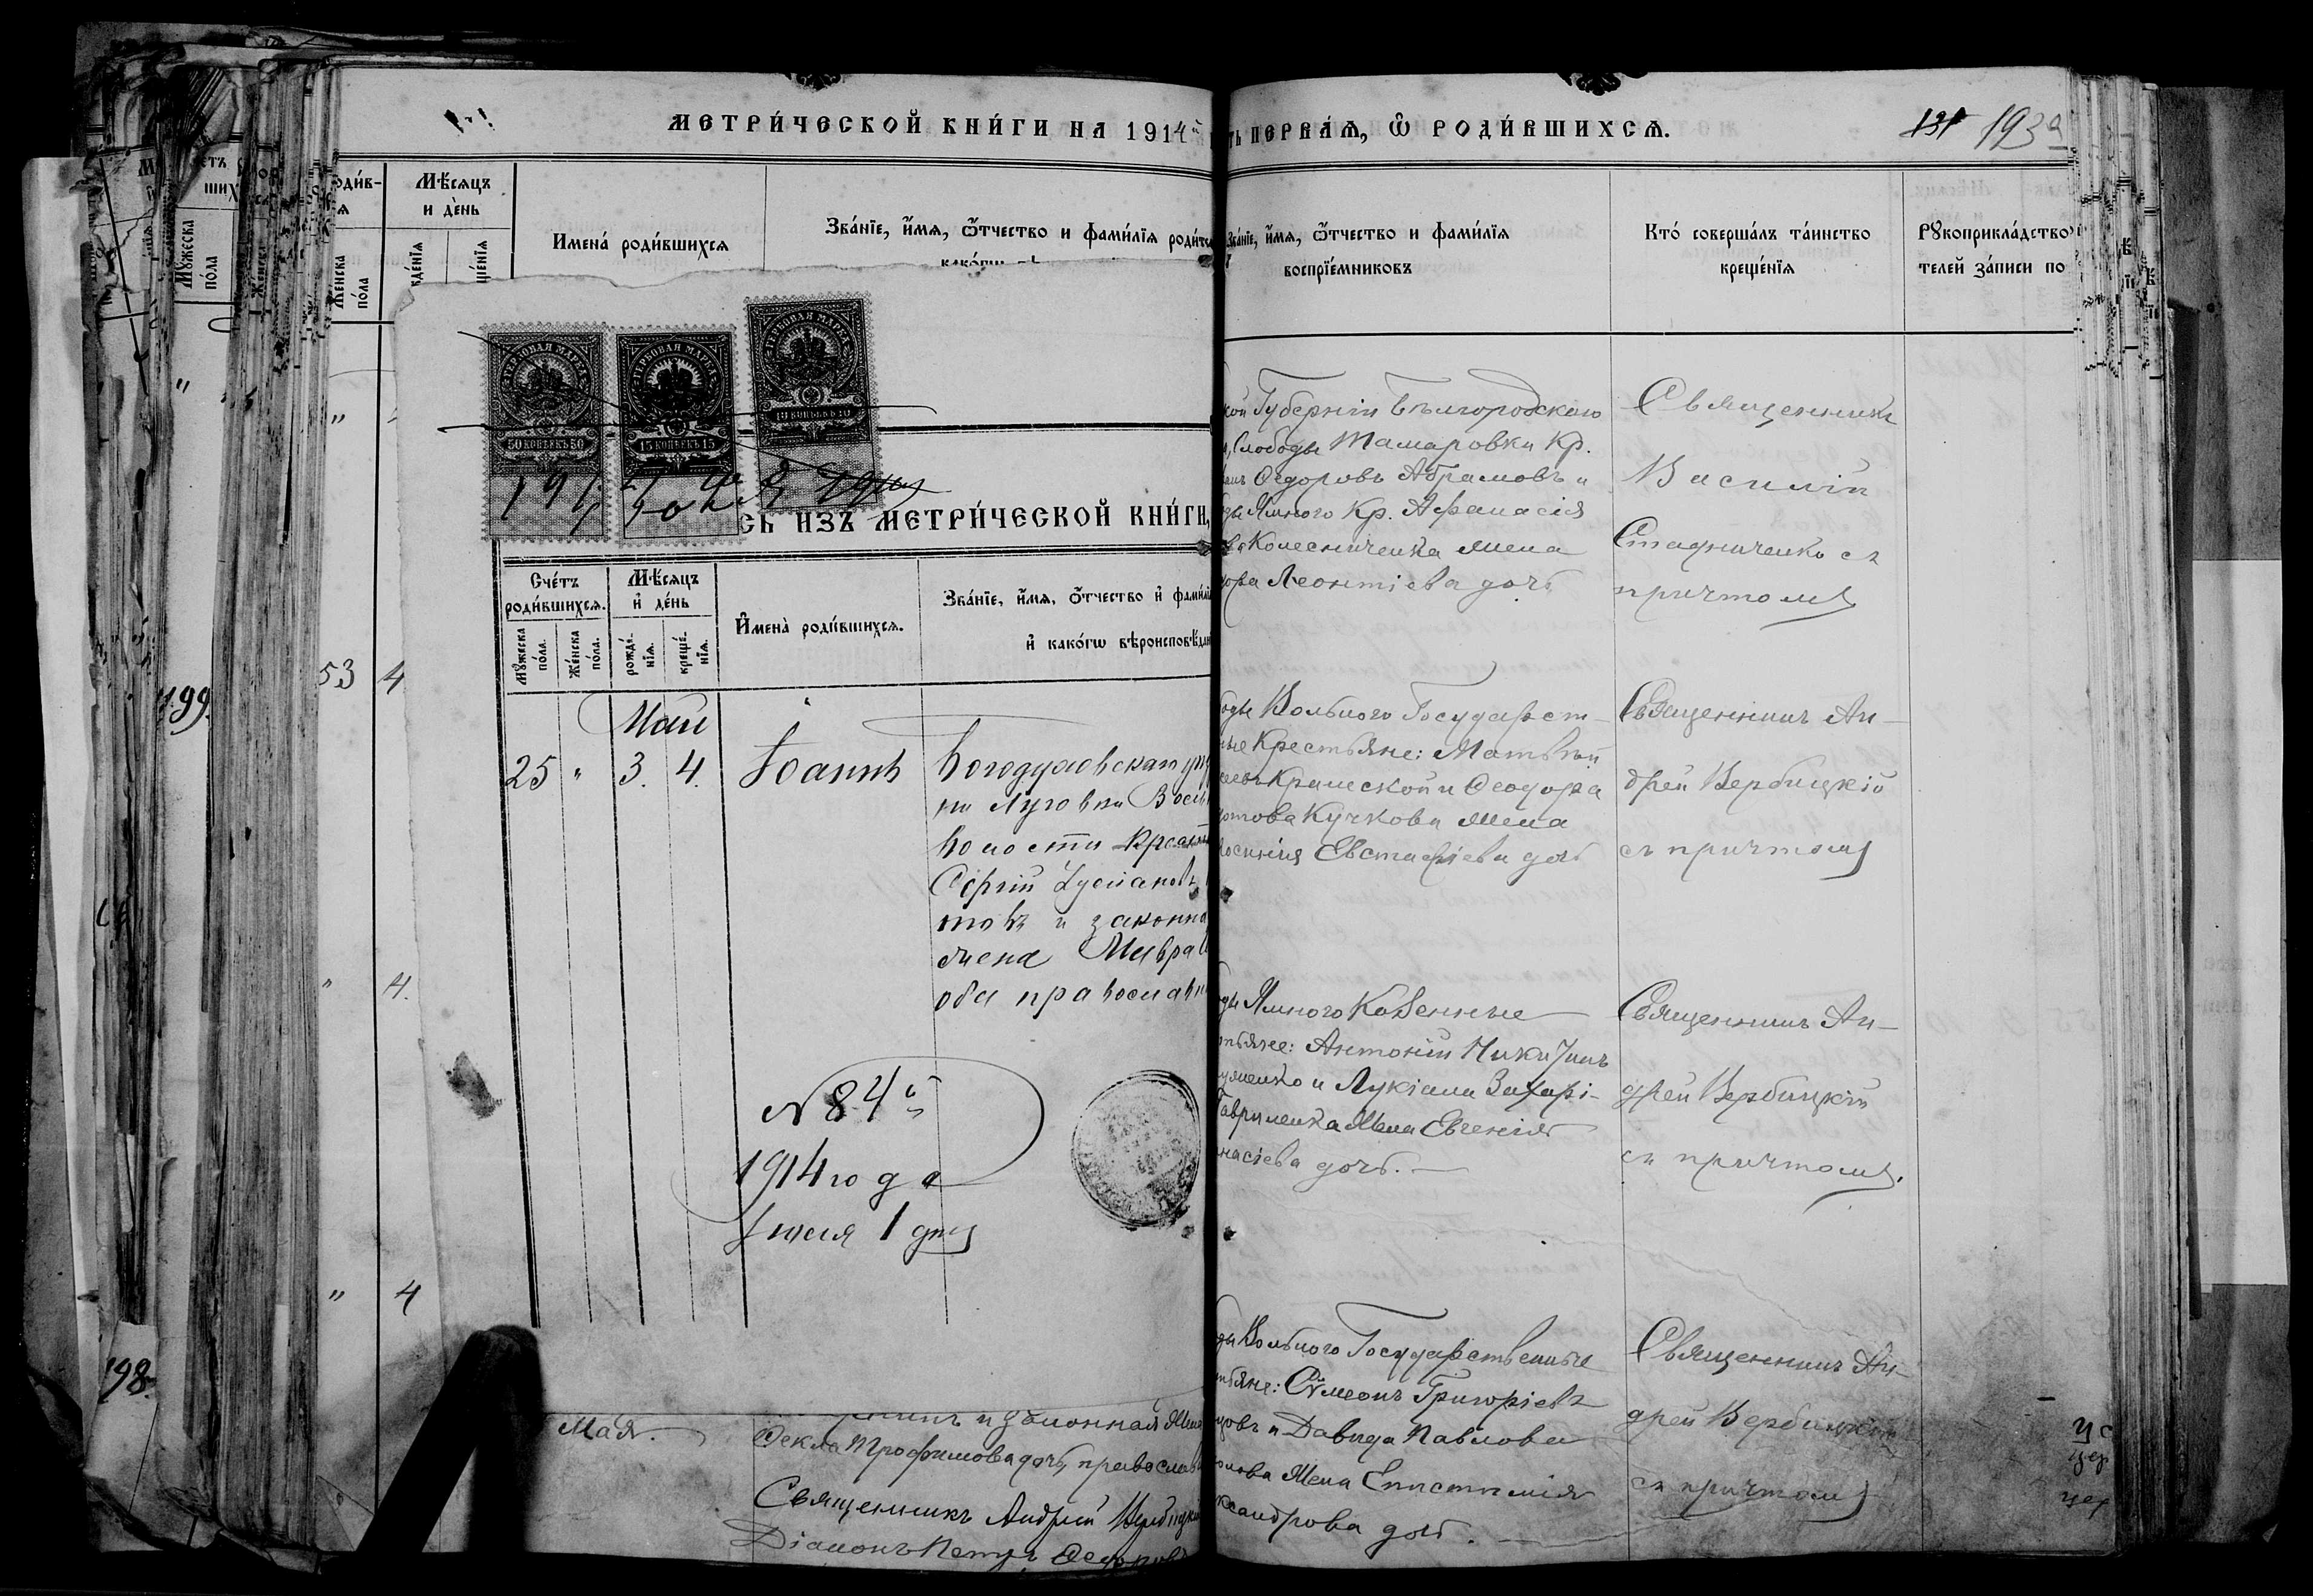 МЕТРИ́ЧЕСКОЙ КНИ́ГИ НА 1914й
ТЬ ПЕРВА́Я, Ѡ҆ РОДИ́ВШИХСЯ.
131 193а
Мѣ́сяцъ
и де́нь
Имена̀ роди́вшихся
Зва́нїе, и҆́мя, ѻ҆́тчество и фами́лїя роди́те
Зва́нїе, и҆́мя, ѻ҆́тчество и фами́лїя
воспрїе́мниковъ
Кто́ соверша́лъ та́инство
креще́нїя
Рꙋкоприкла́дство
телей за́писи по
Же́нска
по́ла
Мꙋ́жеска
по́ла
ГЕРБОВАЯ МАРКА
50 КОПѢЕКЪ 50
ГЕРБОВАЯ МАРКА
15 КОПѢЕКЪ 15
ГЕРБОВАЯ МАРКА
10 КОПѢЕКЪ 10
СЬ ИЗЪ МЕТРИ́ЧЕСКОЙ КНИ́ГИ,
Сче́тъ
роди́вшихся.
Мѣ́сяцъ
и҆ де́нь
И҆мена̀ роди́вшихся.
Зва́нїе, и҆́мя, ѻ҆́тчество и҆ фами́лї
и҆ како́гѡ вѣроисповѣ́дан
Мꙋ́жеска
по́ла.
Же́нска
по́ла.
рожде́-
нїя.
креще́-
нїя.
Май
25 " 3. 4. Іоаннъ
Богодуховскаго уѣз
ки Луговки
Волости Крест
Сергій Лукіановъ
товъ и законна
жена Мавра
оба православн
№ 84й
1914 года
Іюля 1 дня
53 4
199.
" 4.
" 4
198.
кой Губерніи Бѣлгородскаго
Слободы Тамаровки Кр.
Ѳедоровъ Абрамовъ и
ды Ямного Кр. Аѳанасія
Колесниченка жена
Леонтіева дочь
Священникъ
Василій
Стадниченко съ
причтомъ
оды Вольного Государст-
ные Крестьяне: Матѳей
Крамской и Ѳеодора
Кучкова жена
Евстафіева дочь
Священникъ Ан-
дрей Вербицкій
съ причтомъ
ды Ямного Казенные
тьяне: Антоній Никитинъ
и Лукіана Захарі-
Гавриленка Жена Евгенія
насіева дочь.
Священникъ Ан-
дрей Вербицкій
съ причтомъ.
ды Вольного Государственные
тьяне: Сѵмеонъ Григоріевъ
и Давида Павлова
Жена Епистимія
ксандрова дочь.
Священникъ Ан-
дрей Вербицкій
съ причтомъ
Мая.
и законная Жена
Ѳекла Трофимова дочь, православ
Священникъ Андрей Вербицкій
Діаконъ Петръ Ѳедоровъ